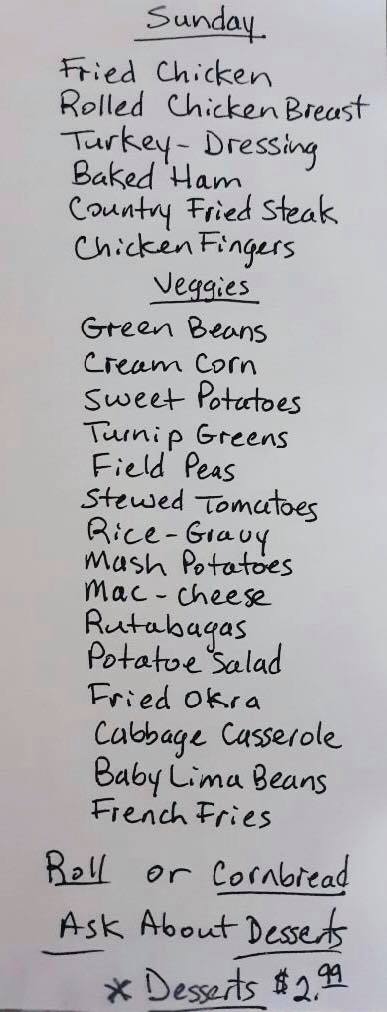 Sunday
Fried Chicken
Rolled Chicken Breast
Turkey - Dressing
Baked Ham
Country Fried Steak
Chicken Fingers
Veggies
Green Beans
Cream Corn
Sweet Potatoes
Turnip Greens
Field Peas
Stewed Tomatoes
Rice - Gravy
Mash Potatoes
Mac - Cheese
Rutabagas
Potatoe Salad
Fried Okra
Cabbage Casserole
Baby Lima Beans
French Fries
Roll or Cornbread
Ask About Desserts
* Desserts $2.99